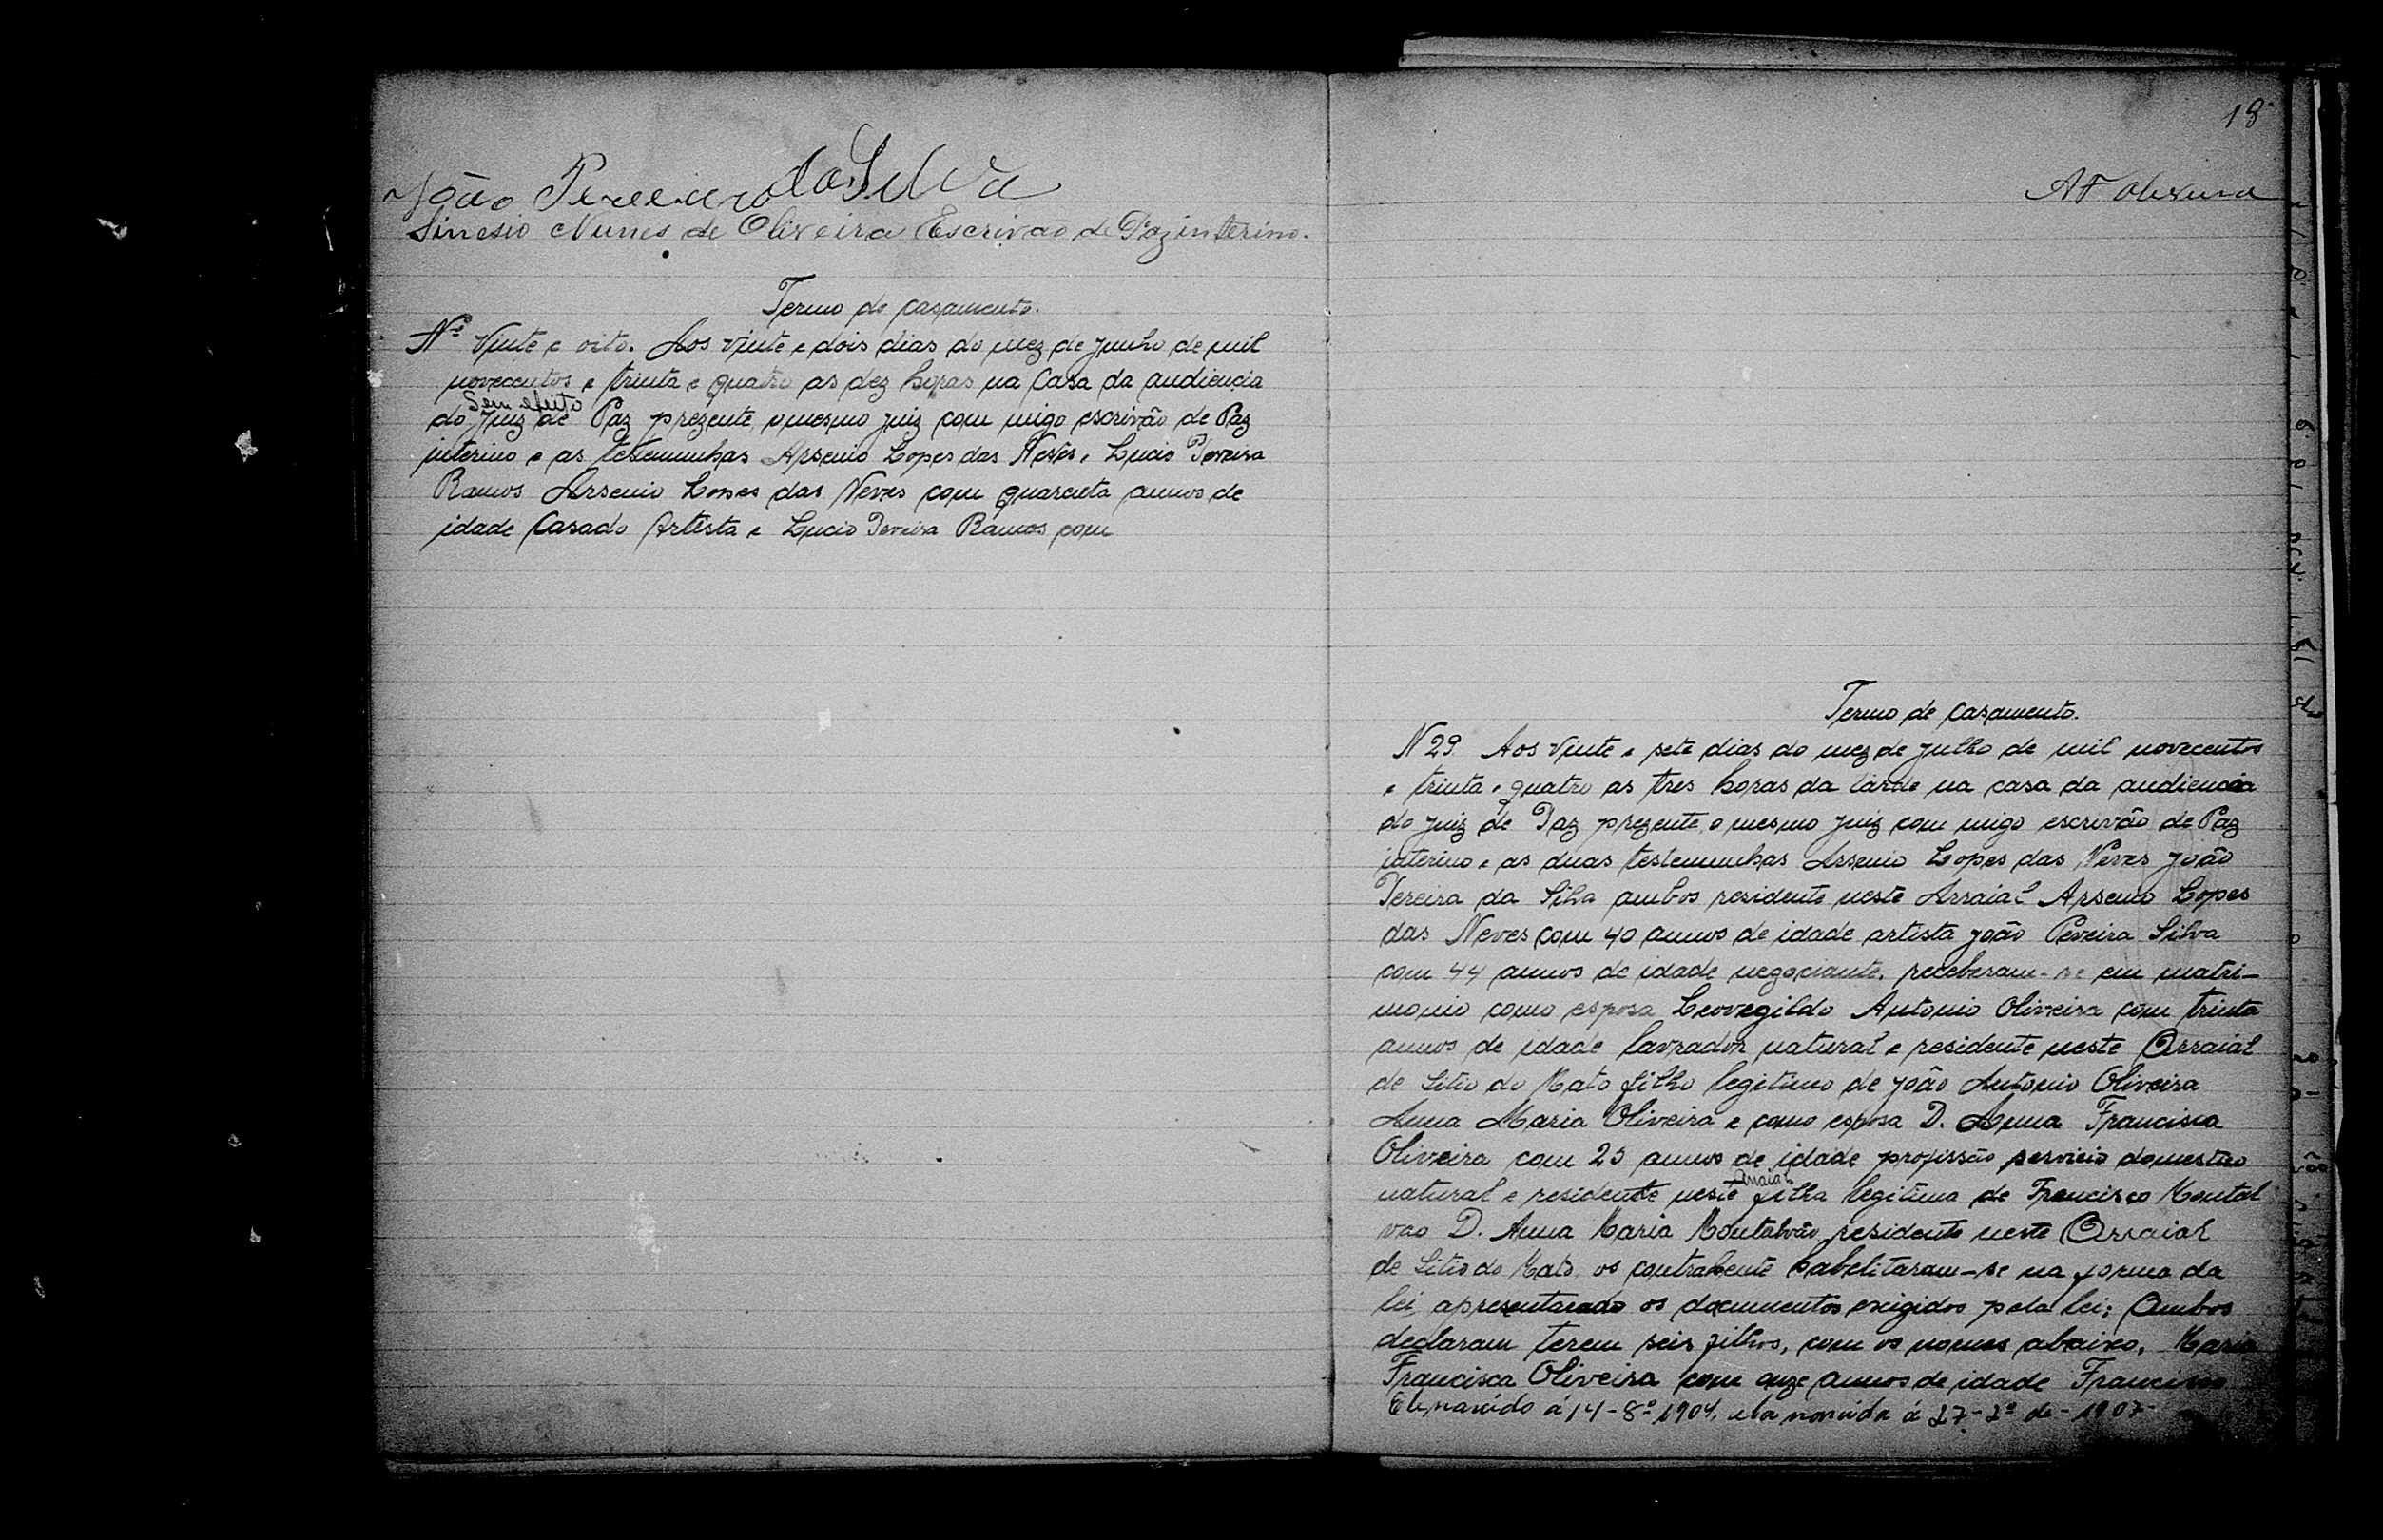 João Pereira da Silva
Sinesio Nunes de Oliveira Escrivão de Paz interino.
Termo de casamento.
Nº Vinte e oito. Aos vinte e dois dias do mez de junho de mil
novecentos e trinta e quatro as dez horas na Casa da audiencia
Sem efeito
do Juiz de Paz prezente o mesmo juiz com migo escrivão de Paz
interino e as testemunhas Arsenio Lopes das Neves e Lucio Pereira
Ramos Arsenio Lopes das Neves com quarenta annos de
idade Casado Artista e Lucio Pereira Ramos com
18
AF Oliveira
Termo de Casamento.
N 29. Aos vinte e sete dias do mez de julho de mil novecentos
e trinta e quatro as tres horas da tarde na casa da audiencia
do juiz de Paz prezente o mesmo juiz com migo escrivão de Paz
interino e as duas testemunhas Arsenio Lopes das Neves João
Pereira da Silva ambos residente neste Arraial Arsenio Lopes
das Neves com 40 annos de idade artista João Pereira Silva
com 44 annos de idade negociante, receberam-se em matri-
monio como esposa Leovegildo Antonio Oliveira com trinta
annos de idade lavrador natural e residente neste Arraial
de Sitio do Mato filho legitimo de João Antonio Oliveira
Anna Maria Oliveira e como esposa D. Anna Francisca
Oliveira com 25 annos de idade profissão servicio domestico
Arraial
natural e residente neste filha legitima de Francisco Montal
vao D. Anna Maria Montalvão residente neste Arraial
de Sitio do Mato, os contrahente habelitaram-se na forma da
lei apresentarado os documentos exigidos pela lei; Ambos
declaram terem seis filhos, com os nomes abaixo, Maria
Francisca Oliveira com onze annos de idade Francisco
Ele nascido á 14-8º 1904, ela nascida á 27-2º de - 1907-